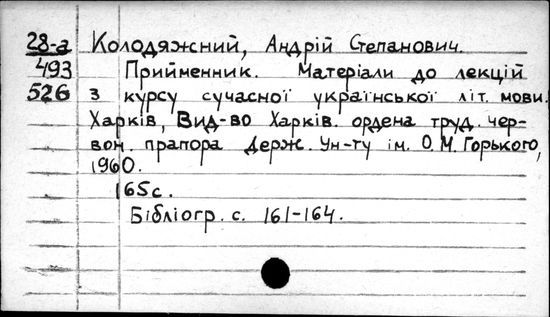 28-а Колодяжний, Андрій Степанович.
493 Прийменник. Матеріали до лекцій
526 з курсу сучасної української літ. мови.
Харків, Вид-во Харків. ордена труд. чер-
вон. прапора Держ. Ун-ту ім. О.М. Горького,
1960.
165с.
Бібліогр. с. 161-164.